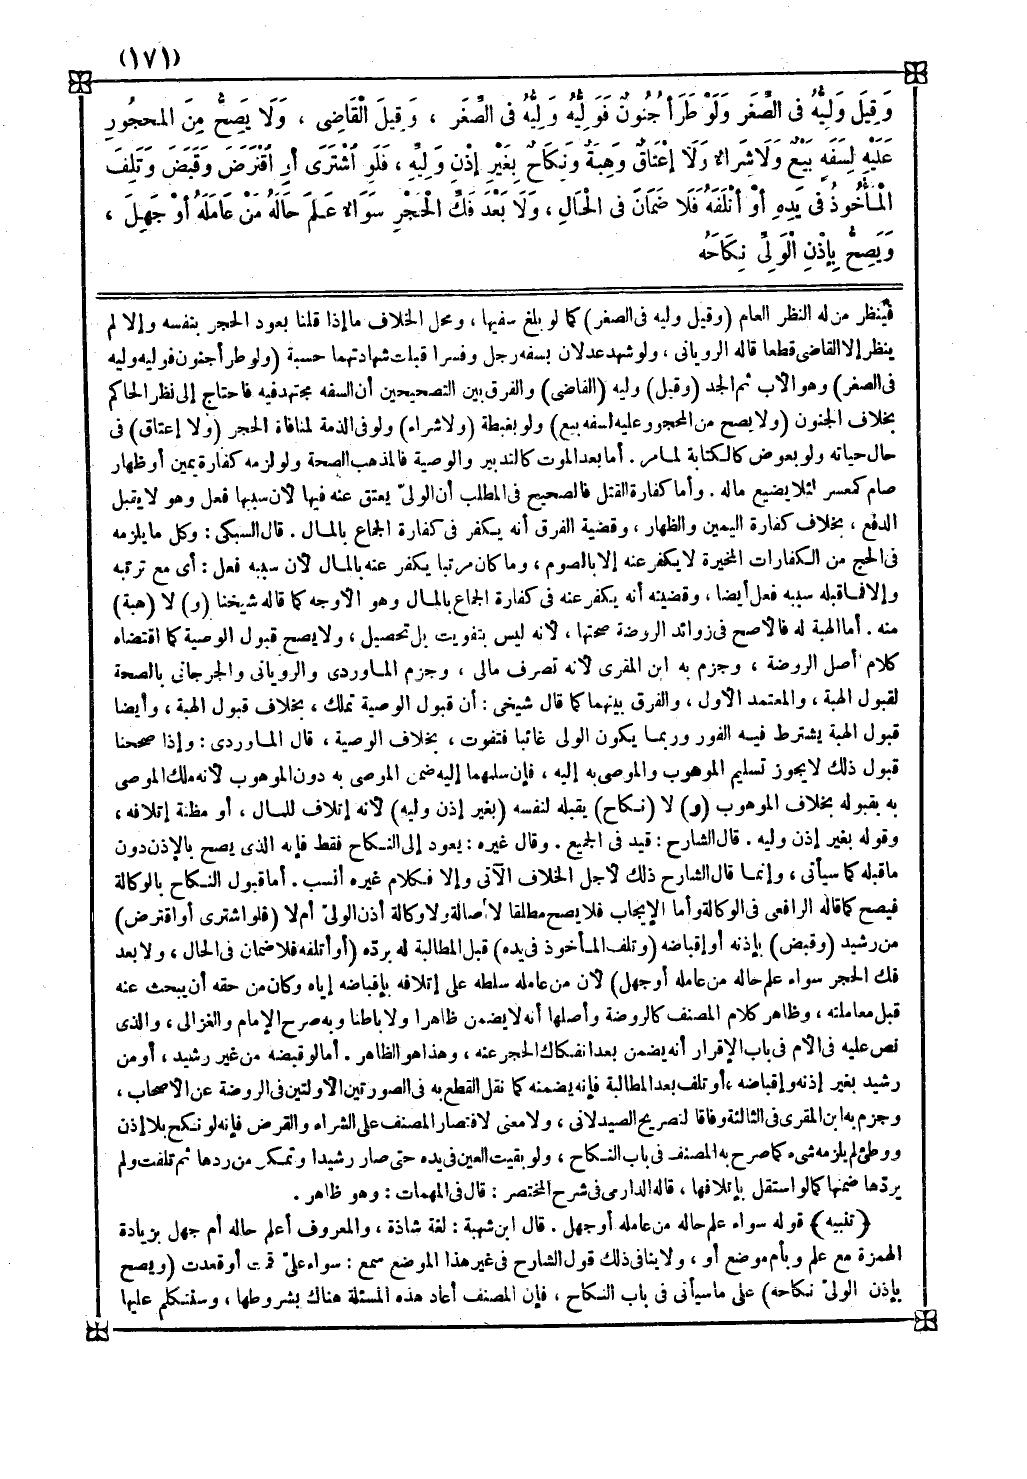 (١٧١)
وَقِيلَ وَلِيُّهُ فى الصِّغَرِ وَلَوْ طَرَأَ جُنُونٌ فَوَلِيُّهُ وَلِيُّهُ فى الصِّغَرِ ، وَقِيلَ الْقَاضِى ، وَلَا يَصِحُّ مِنَ المَحجُورِ
عَلَيْهِ لِسَفَهٍ بَيْعٌ وَلَا شِرَاءٌ وَلَا إِعْتَاقٌ وَهِبَةٌ وَنِكَاحٌ بِغَيْرِ إِذْنِ وَلِيِّهِ ، فَلَوِ اشْتَرَى أَوِ اقْتَرَضَ وَقَبَضَ وَتَلِفَ
الْمَأْخُوذُ فى يَدِهِ أَوْ أَتْلَفَهُ فَلَا ضَمَانَ فى الْحَالِ ، وَلَا بَعْدَ فَكِّ الْحَجْرِ سَوَاءٌ عَلِمَ حَالَهُ مَنْ عَامَلَهُ أَوْ جَهِلَ ،
وَيَصِحُّ بِإِذْنِ الْوَلِىِّ نِكَاحُه
فينظر من له النظر العام (وقيل وليه فى الصغر) كما لو بلغ سفيها ، ومحل الخلاف ما إذا قلنا بعود الحجر بنفسه وإلا لم
ينظر إلا القاضى قطعا قاله الرويانى ، ولو شهد عدلان بسفه رجل وفسرا قبلت شهادتهما حسبة (ولو طرأ جنون فوليه وليه
فى الصغر) وهو الأب ثم الجد (وقيل) وليه (القاضى) والفرق بين التصحيحين أن السفه مجتهد فيه فاحتاج إلى نظر الحاكم
بخلاف الجنون (ولا يصح من المحجور عليه لسفه بيع) ولو بغبطة (ولا شراء) ولو فى الذمة لمنافاة الحجر (ولا إعتاق) فى
حال حياته ولو بعوض كالكتابة لما مر . أما بعد الموت كالتدبير والوصية فالمذهب الصحة ولو لزمه كفارة يمين أو ظهار
صام كمعسر لئلا يضيع ماله . وأما كفارة القتل فالصحيح فى المطلب أن الولىّ يعتق عنه فيها لأن سببها فعل وهو لا يقبل
الدفع ، بخلاف كفارة اليمين والظهار ، وقضية الفرق أنه يكفر فى كفارة الجماع بالمال . قال السبكى : وكل ما يلزمه
فى الحج من الكفارات المخيرة لا يكفر عنه إلا بالصوم ، وما كان مرتبا يكفر عنه بالمال لأن سببه فعل : أى مع ترتبه
وإلا فما قبله سببه فعل أيضا ، وقضيته أنه يكفر عنه فى كفارة الجماع بالمال وهو الأوجه كما قاله شيخنا (و) لا (هبة)
منه . أما الهبة له فالأصح فى زوائد الروضة صحتها ، لأنه ليس بتفويت بل تحصيل ، ولا يصح قبول الوصية كما اقتضاه
كلام أصل الروضة ، وجزم به ابن المقرى لأنه تصرف مالى ، وجزم الماوردى والرويانى والجرجانى بالصحة
لقبول الهبة ، والمعتمد الأول ، والفرق بينهما كما قال شيخى : أن قبول الوصية تملك ، بخلاف قبول الهبة ، وأيضا
قبول الهبة يشترط فيه الفور وربما يكون الولى غائبا فتفوت ، بخلاف الوصية ، قال الماوردى : وإذا صححنا
قبول ذلك لا يجوز تسليم الموهوب والموصى به إليه ، فإن سلمهما إليه ضمن الموصى به دون الموهوب لأنه ملك الموصى
به بقبوله بخلاف الموهوب (و) لا (نكاح) يقبله لنفسه (بغير إذن وليه) لأنه إتلاف للمال ، أو مظنة إتلافه ،
وقوله بغير إذن وليه . قال الشارح : قيد فى الجميع . وقال غيره : يعود إلى النكاح فقط فإنه الذى يصح بالإذن دون
ما قبله كما سيأتى ، وإنما قال الشارح ذلك لأجل الخلاف الآتى وإلا فكلام غيره أنسب . أما قبول النكاح بالوكالة
فيصح كما قاله الرافعى فى الوكالة وأما الإيجاب فلا يصح مطلقا لا أصالة ولا وكالة أذن الولىّ أم لا (فلو اشترى أو اقترض)
من رشيد (وقبض) بإذنه أو إقباضه (وتلف المأخوذ فى يده) قبل المطالبة له بردّه (أو أتلفه فلا ضمان فى الحال ، ولا بعد
فك الحجر سواء علم حاله من عامله أو جهل) لأن من عامله سلطه على إتلافه بإقباضه إياه وكان من حقه أن يبحث عنه
قبل معاملته ، وظاهر كلام المصنف كالروضة وأصلها أنه لا يضمن ظاهرا ولا باطنا وبه صرح الإمام والغزالى ، والذى
نص عليه فى الأم فى باب الإقرار أنه يضمن بعد انفكاك الحجر عنه ، وهذا هو الظاهر . أما لو قبضه من غير رشيد ، أو من
رشيد بغير إذنه وإقباضه ، أو تلف بعد المطالبة فإنه يضمنه كما نقل القطع به فى الصورتين الأولتين فى الروضة عن الأصحاب ،
وجزم به ابن المقرى فى الثالثة وفاقا لتصريح الصيدلانى ، ولا معنى لاقتصار المصنف على الشراء والقرض فإنه لو نكح بلا إذن
ووطئ لم يلزمه شىء كما صرح به المصنف فى باب النكاح ، ولو بقيت العين فى يده حتى صار رشيدا وتمكن من ردها ثم تلفت ولم
يردّها ضمنها كما لو استقل بإتلافها ، قاله الدارمى فى شرح المختصر : قال فى المهمات : وهو ظاهر .
(تنبيه) قوله سواء علم حاله من عامله أو جهل . قال ابن شهبة : لغة شاذة ، والمعروف أعلم حاله أم جهل بزيادة
الهمزة مع علم وبأم موضع أو ، ولا ينافى ذلك قول الشارح فى غير هذا الموضع سمع : سواء علىّ قمت أو قعدت (ويصح
بإذن الولىّ نكاحه) على ما سيأتى فى باب النكاح ، فإن المصنف أعاد هذه المسئلة هناك بشروطها ، وسنتكلم عليها